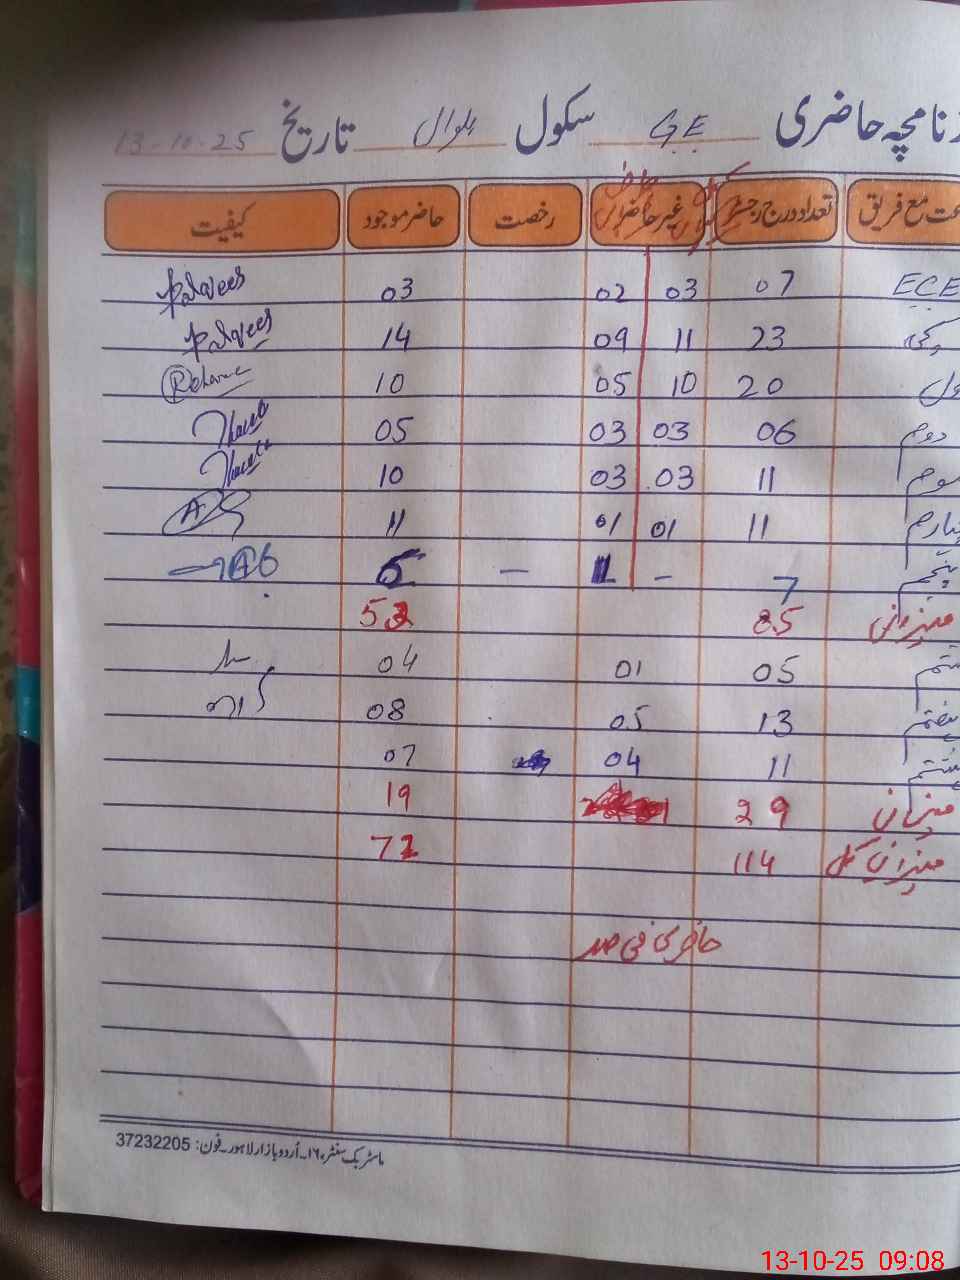 زنامچہ حاضری GE سکول پلوال تاریخ 13-10-25
عت مع فریق تعداد درج رجسٹر غیر حاضر رخصت حاضر موجود کیفیت
ECE 07 03 02 03 Parvees
کچی 23 11 09 14 Parvees
ول 20 10 05 10
دوم 06 03 03 05
سوم 11 03 03 10
ہارم 11 01 01 11
پنجم 7 – 1 – 6
میزان 85 53
ششم 05 01 04
ہفتم 13 05 08
ہشتم 11 04 07
میزان 29 19
میزان کل 114 72
حاضری فی صد
ماسٹر بک سنٹر، ۱۶۔اُردو بازار لاہور۔ فون: 37232205
13-10-25 09:08